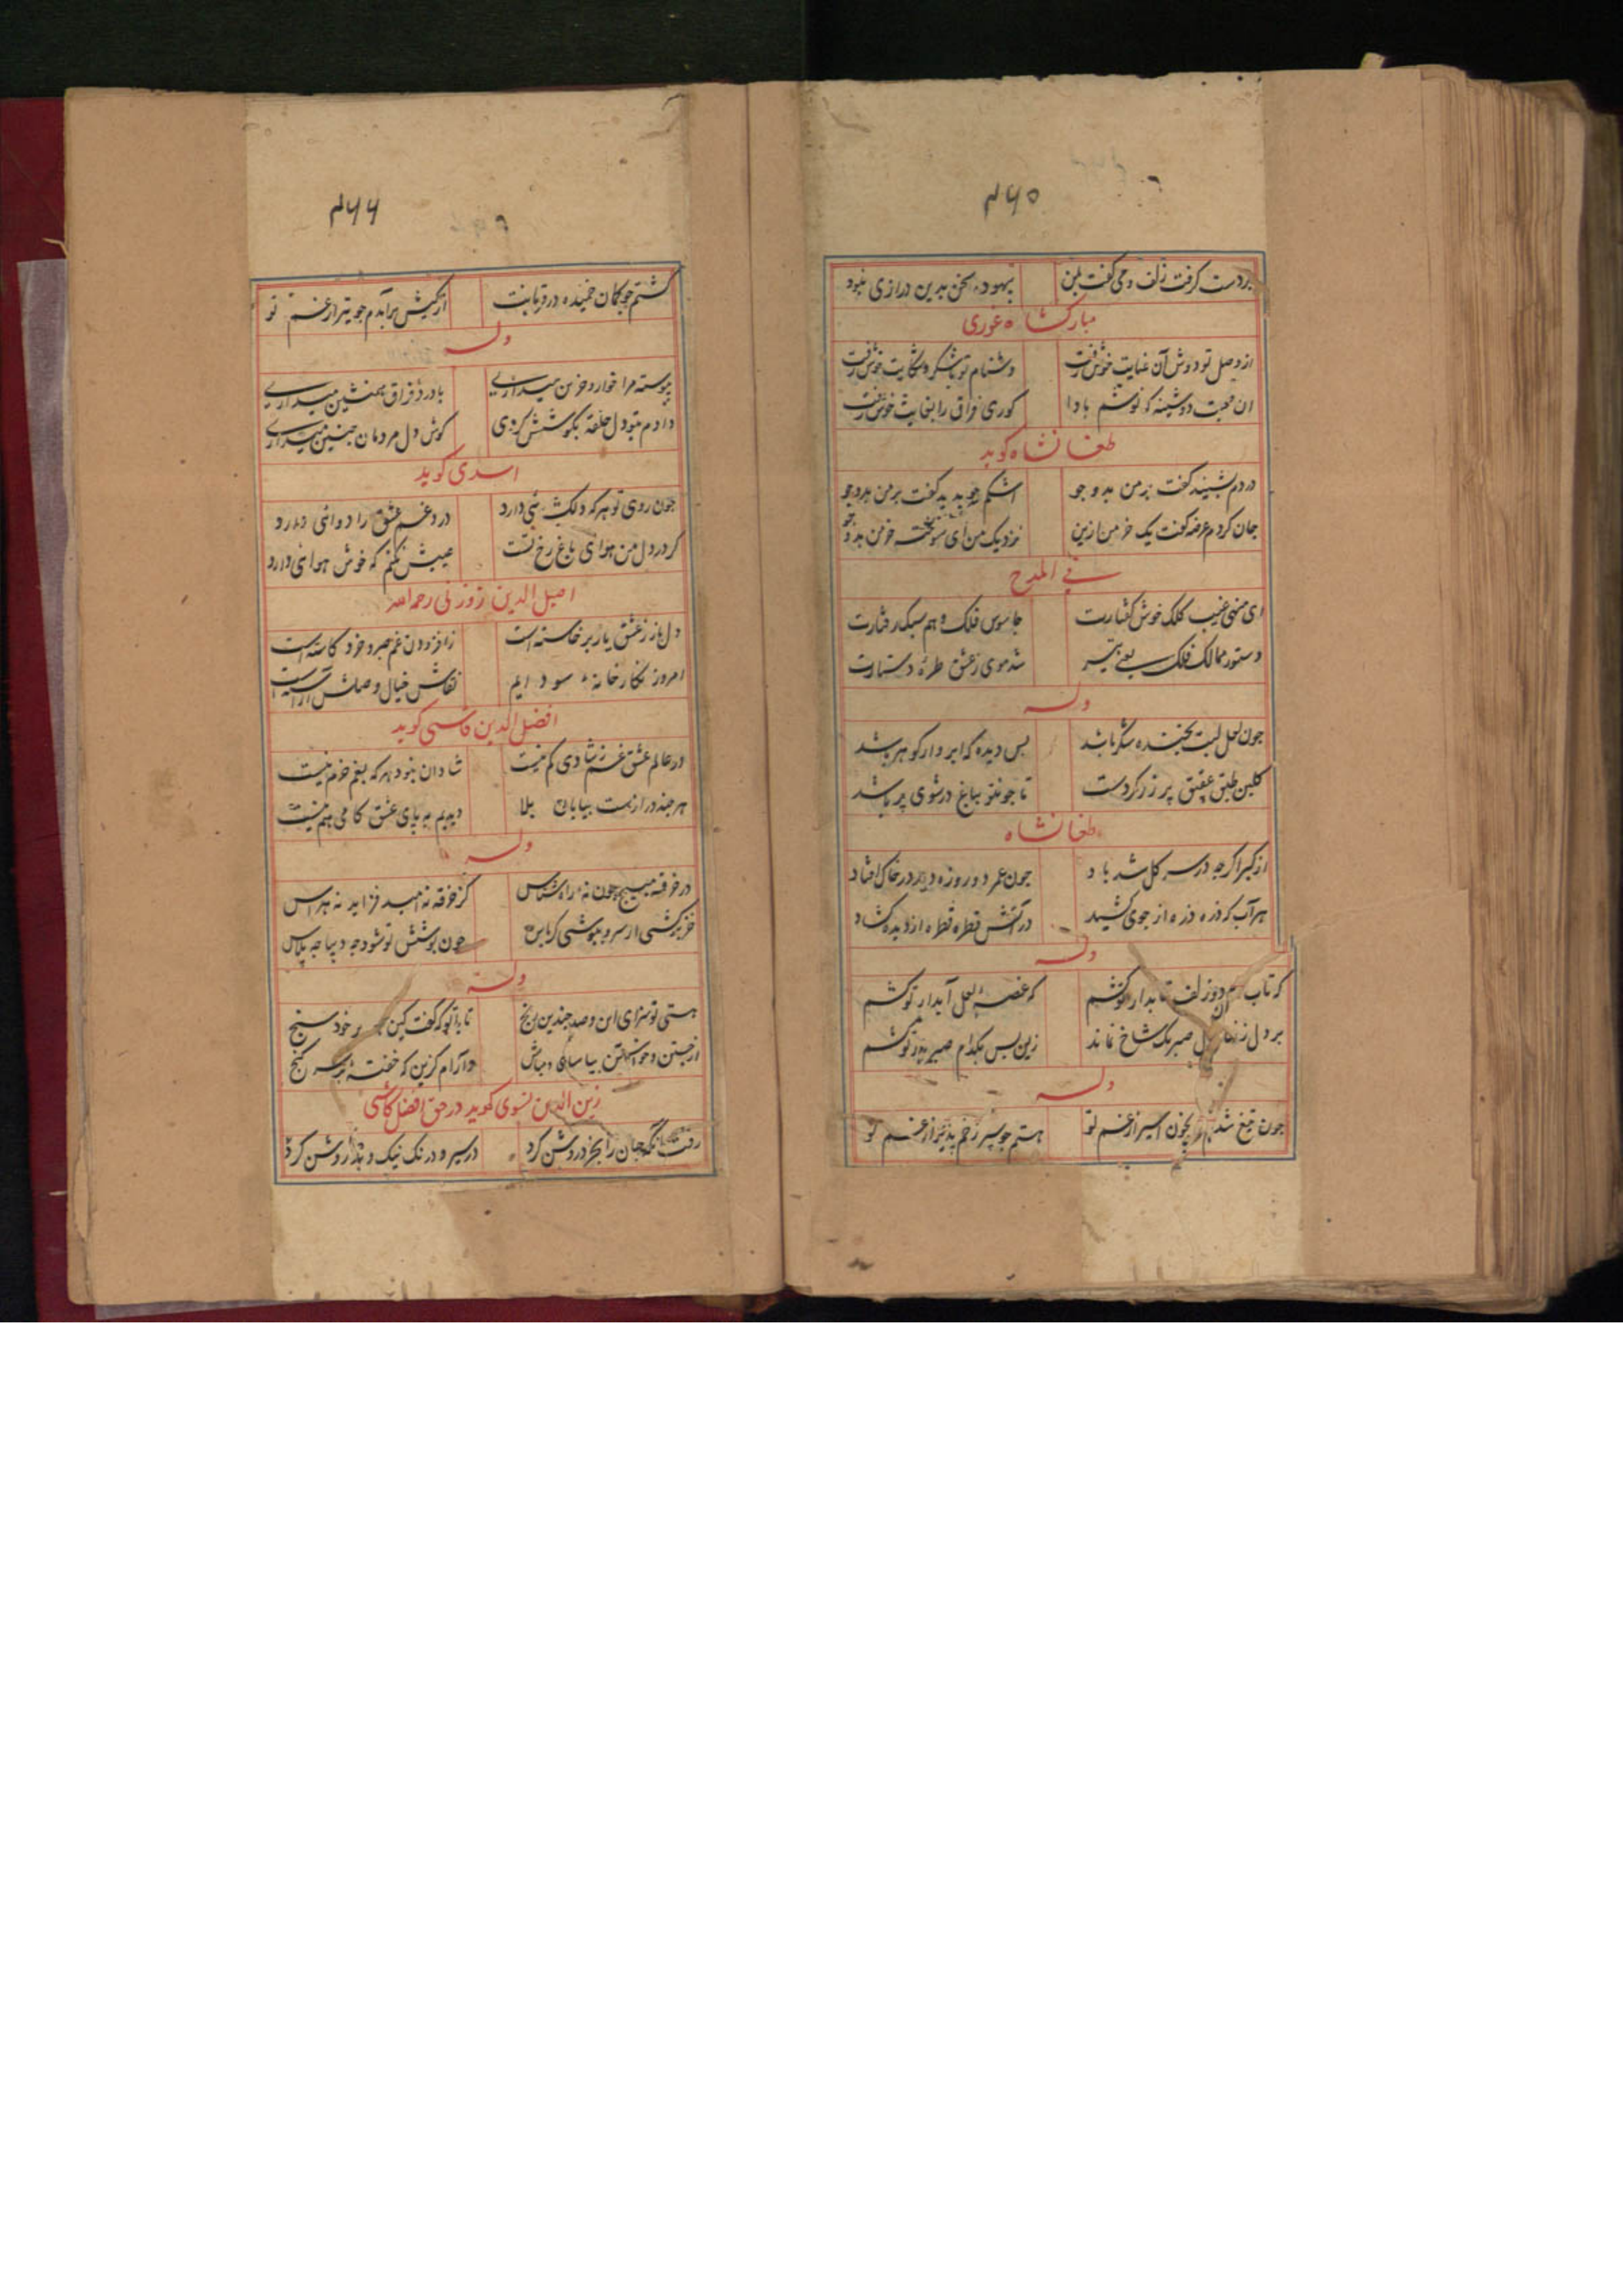 ۴۶۵
بردست گرفت زلف و می گفت بمن بیهوده سخن بدین درازی نبود
مبارکشاه غوری
از وصل تو دوش آن عنایت خوش رفت دشنام تو باشکر و شکایت خوش رفت
ان صحبت دوشینه که نوشم بادا کوری فراق را بغایت خوش رفت
طغانشاه کوید
دردم بشنید گفت برمن بدو جو اشکم چو بدید گفت برمن بدو جو
جان کردم عرضه گفت یک خرمن ازین نزدیک من ای سوخته خرمن بدو جو
فی المدح
ای منهی غیب کلک خوش گفتارت جاسوس فلک وهم سبک رفتارت
دستور ممالک فلک یعنی تیر شد موی زعشق طره دستارت
وله
جون لعل لبت بخنده شکر باشد بس دیده که ابر وار گوهر باشد
گلبن طبق عقیق پر زر کردست تا جو تو بباغ درشوی بر باشد
طغانشاه
از کبر اگرچه درسر گل شد باد جون عمر دو روزه دید در خاک افتاد
هر آب که ذره ذره از جوی کشید در آتش قطره قطره از دیده گشاد
وله
که تاب دو زلف تابدار تو کشم که غصه لعل آبدار تو کشم
بر دل صبر یک شاخ نماند زین بس بکدام صبر تو کشم
وله
جون تیغ شدم بخون اسیر از غم تو هستم جو سپر زخم پذیر از غم تو
۴۶۶
گشتم جو کمان خمیده در قربانت از کیش برآیدم جو تیر از غم تو
وله
پیوسته مرا خوار و حزین میداری با درد فراق همنشین میداری
دادم بتو دل حلقه بگوشش کردی گوش دل مردمان جنین میداری
اسدی کوید
جون روی تو هرکه دلکشی دارد درد غم عشق را دوائی دارد
گر در دل من هوای باغ رخ تست عیبش نکنم که خوش هوائی دارد
اصیل الدین زوزنی رحمه الله
دل باز زعشق یار برخاسته است زافزودن غم صبر و خرد کاسته است
امروز نگارخانه سودایم نقاش خیال وصلش آراسته است
افضل الدین کاشی کوید
در عالم عشق غم زشادی کم نیست شادان نبود هرکه بغم خرم نیست
هرچند دراز نیست بیابان بلا دیدیم به پای عشق گامی هم نیست
وله
در خرقه مپیچ چون نه راه شناس کز خرقه نه امید فزاید نه هراس
خز برکشی از سر و بپوشی کرباس جون پوشش تو شود جه دیباجه پلاس
وله
هستی تو سزای این و صد چندین رنج تا باتو که گفت کین بر خود سنج
از جستن و خواستن بیاسای و بباش وآرام گزین که خفته بر سر گنج
زین الدین نسوی کوید در حق افضل کاشی
جان را بخرد روشن کرد در سیر و درنک نیک و بد روشن کرد